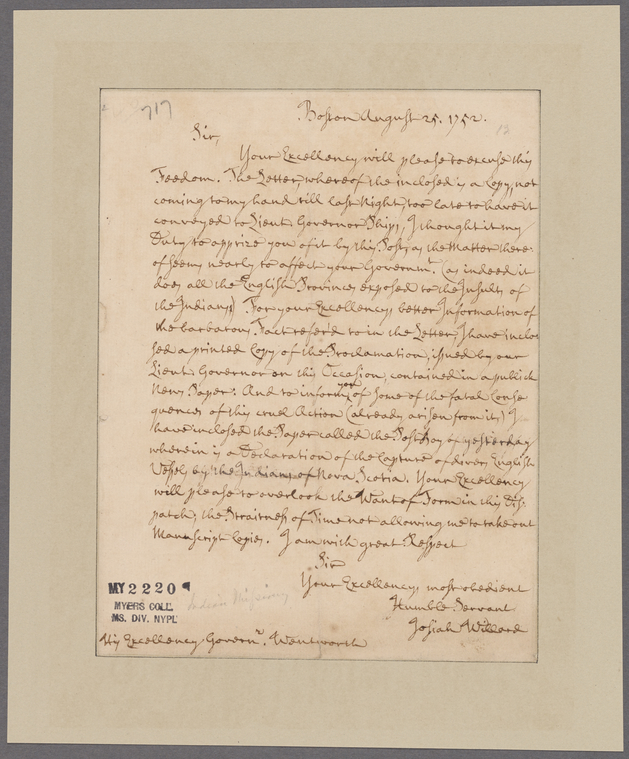 717
Boston August 25. 1752.
12
Sir,
Your Excellency will please to excuse this
Freedom. The Letter, whereof the inclosed is a Copy, not
coming to my hand till last Night, too late to have it
conveyed to Lieut. Governor Phips, I thought it my
Duty to apprize you of it by this Post, as the Matter there-
of seems nearly to affect your Governmt. (as indeed it
does all the English Provinces exposed to the Insults of
the Indians) For your Excellencys better Information of
the barbarous Fact referd to in the Letter, I have inclo
sed a printed Copy of the Proclamation, issued by our
Lieut. Governor on this Occasion, contained in a publick
News Paper: And to inform you of some of the fatal Conse
quences of this cruel Action (already arisen from it,) I
have inclosed the Paper called the Post Boy of yesterday
wherein is a Declaration of the Capture of divers English
Vessels by the Indians of Nova Scotia. Your Excellency
will please to overlook the Want of Form in this Dis-
patch, the Straitness of Time not allowing me to take out
Manuscript Copies. I am with great Respect
Sir
Your Excellencys most obedient
Humble Servant
Josiah Willard
MY 2220
MYERS COLL.
MS. DIV. NYPL
Indian Missions
His Excellency Governr. Wentworth